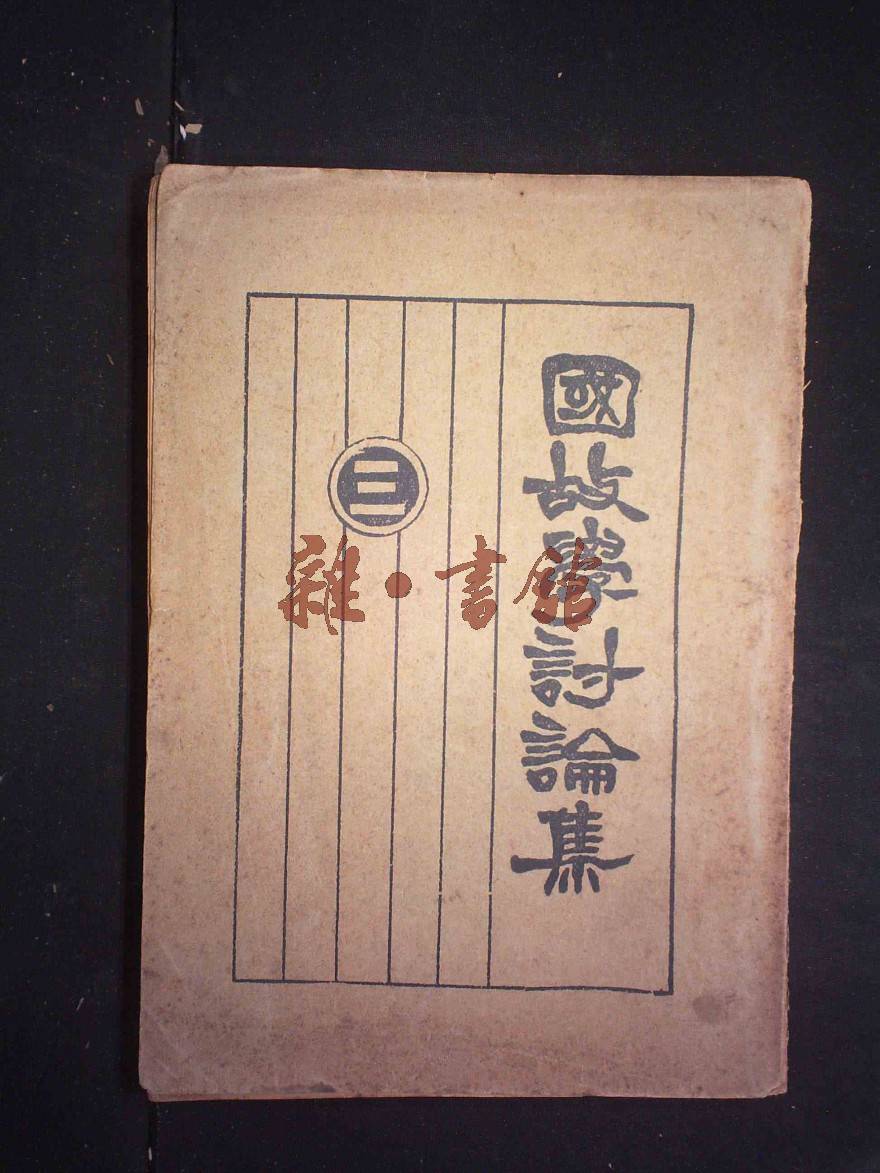 國故學討論集
三
雜·書館